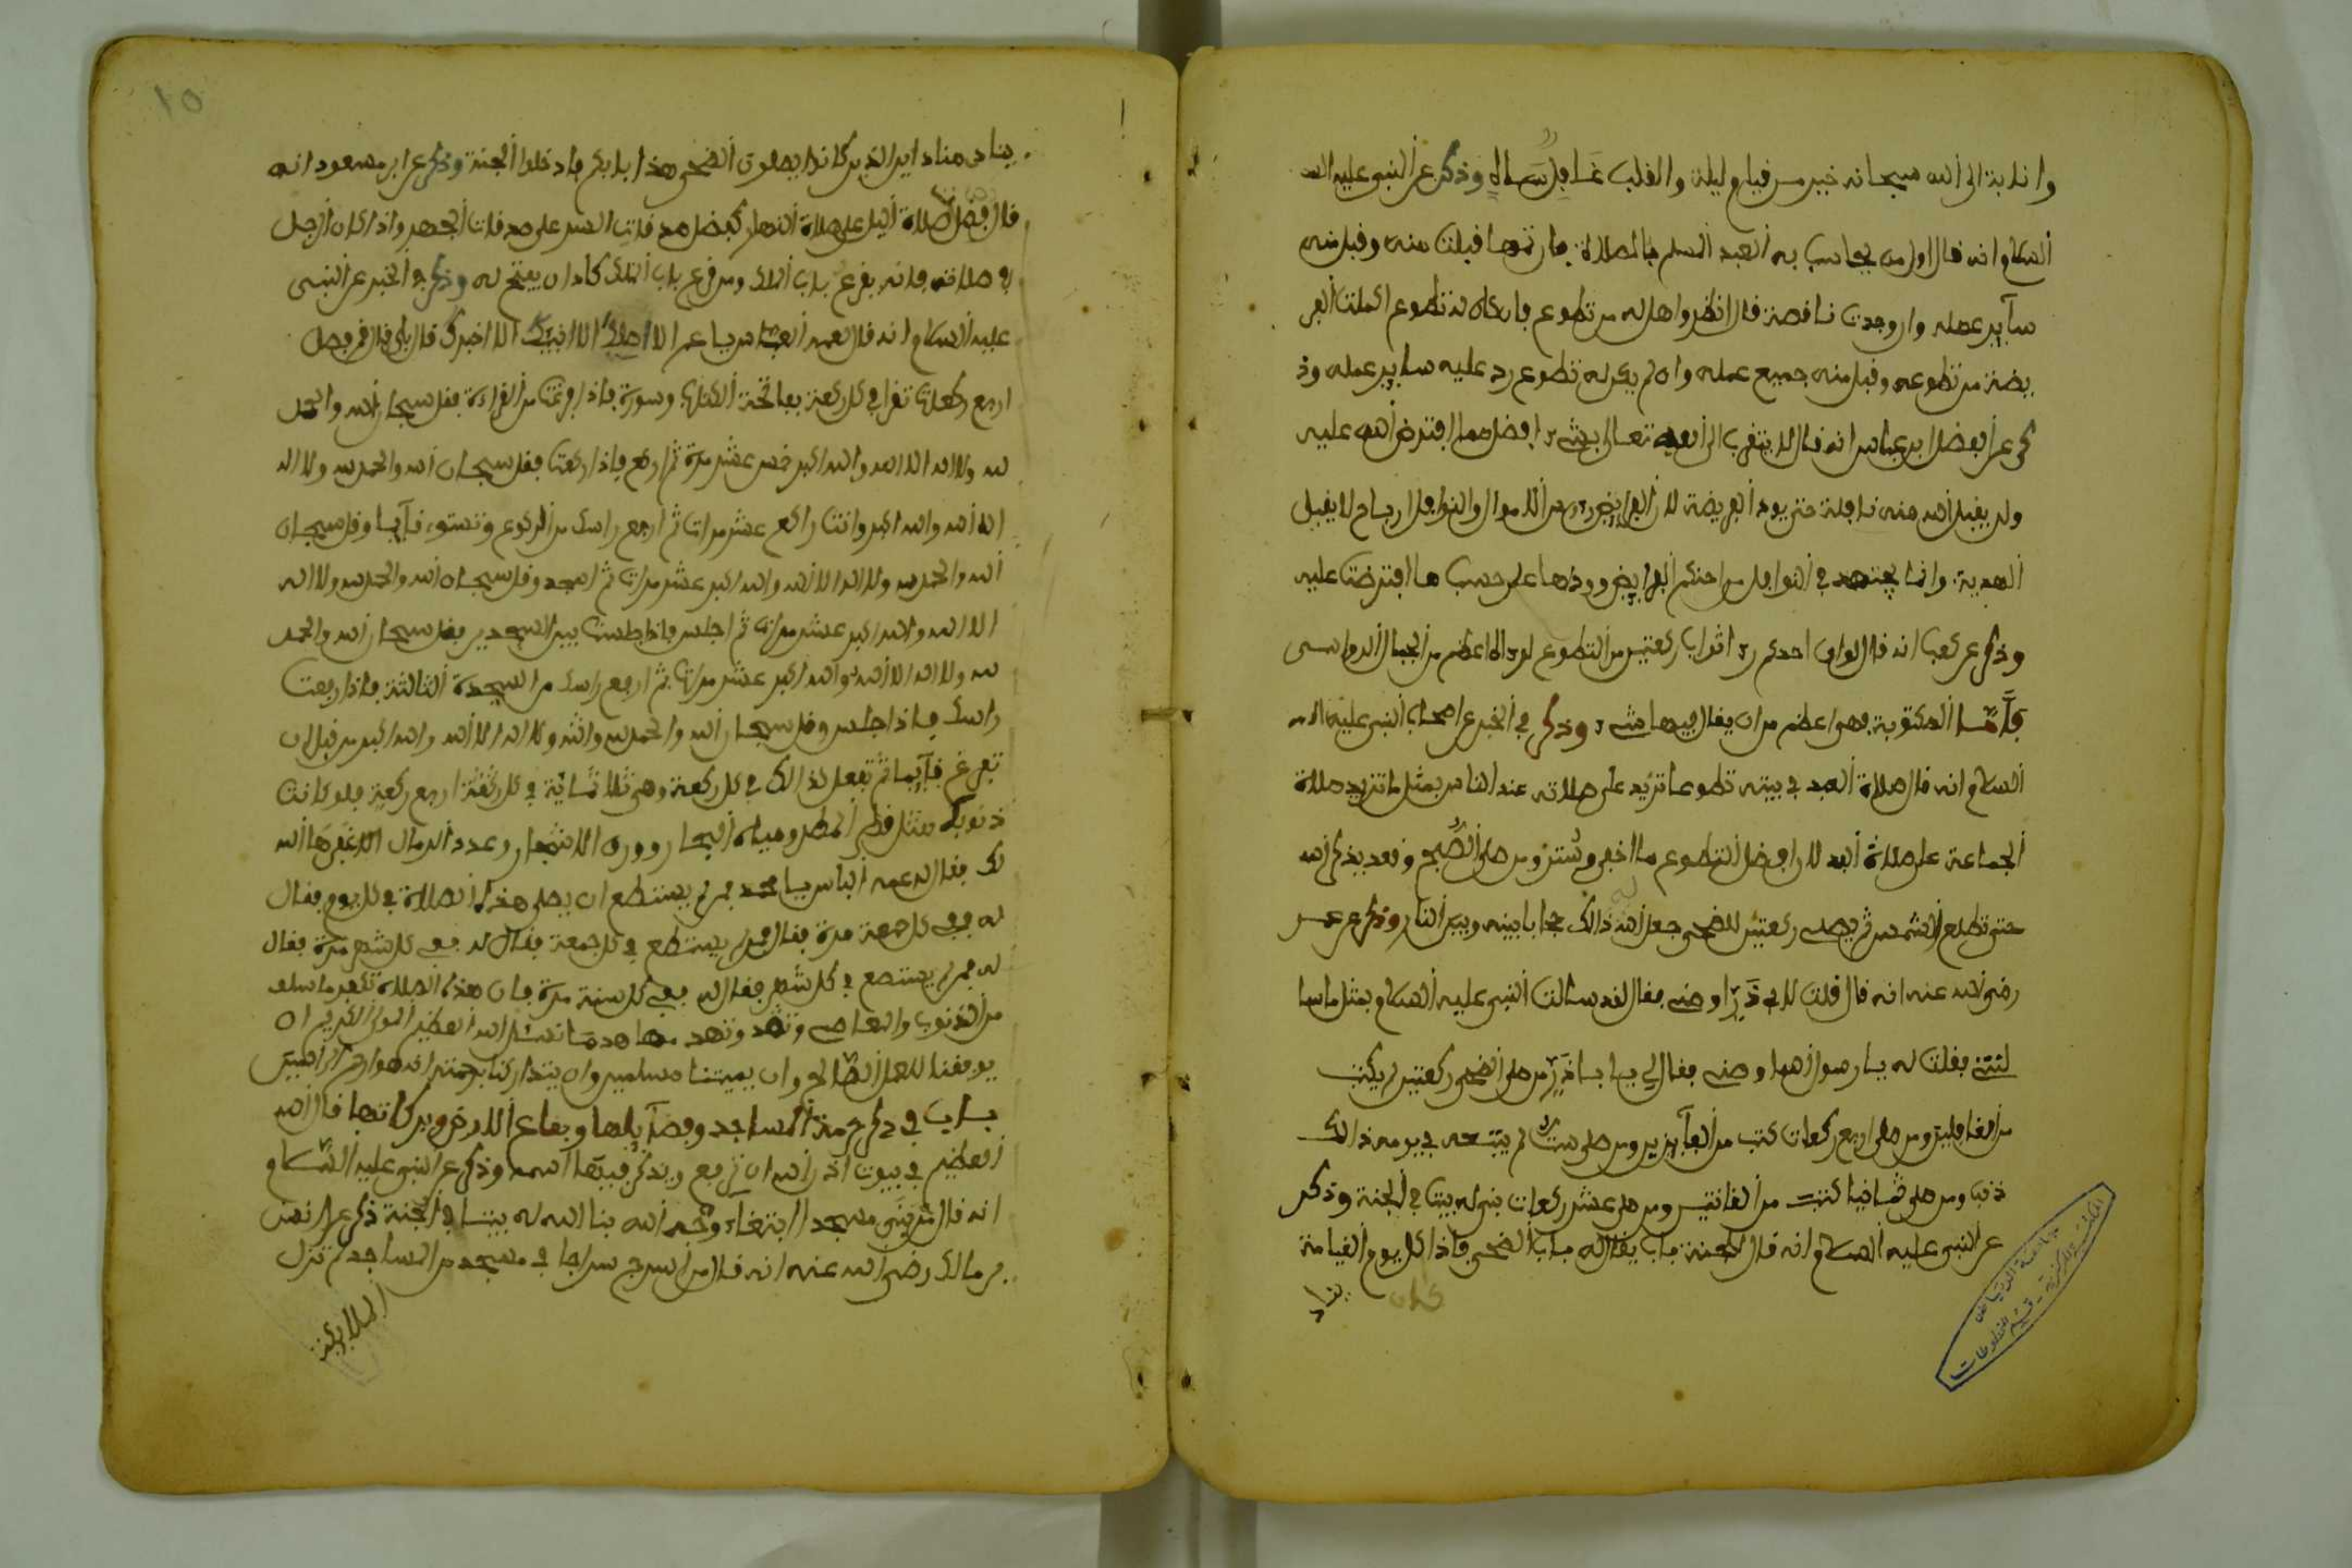 وانابة الى الله سبحانه خير من قيام ليلة والقلب غافل ساه وذكر عن النبي عليه
السلام انه قال اول من يحاسب به العبد المسلم بالصلاة فان تمها قبلت منه وقبل منه
سآير عمله وان وجدت ناقصة قال انظروا هل له من تطوع فان كان له تطوع اكملت الفر
يضة من تطوعه وقبل منه جميع عمله وان لم يكن له تطوع رد عليه ساير عمله وذ
كر عن الفضل ابن عباس انه قال لا يتقرب الى الله تعالى بشيء افضل مما افترض الله عليه
ولن يقبل الله منه نافلة حتى يود الفريضة لان الفرايض راس الاموال والنوافل ارباح لا يقبل
الهدية وانما يجتهد في النوافل من احكم الفرايض وردها على حسب ما افترضت عليه
وذكر عن كعب انه قال لو ان احدكم رءا ثواب ركعتين من التطوع لرءاه اعظم من الجبال الرواسى
فأما المكتوبة فهي اعظم من ان يقال فيها شيء وذكر في الخبر عن اصحاب النبي عليه
السلام انه قال صلاة العبد في بيته تطوعا تزيد على صلاته عند الناس بمثل ما تزيد صلاة
الجماعة على صلاة الفد لان افضل التطوع ما اخفي وستر ومن صلى الصبح وقعد يذكر الله
حتى تطلع الشمس ثم يصلي ركعتين للضحى جعل الله له ذالك حجابا بينه وبين النار وذكر عن عمر
رضي الله عنه انه قال قلت لابي ذر اوصني فقال لقد سالت النبي عليه السلام بمثل ما سا
لتني فقلت له يا رسول الله اوصني فقال لي يا ابا ذر من صلى الضحى ركعتين لم يكتب
من الغافلين ومن صلى اربع ركعات كتب من الفآيزين ومن صلى ستا لم يتبعه في يومه ذالك
ذنب ومن صلى ثمانيا كتب من القانتين ومن صلى عشر ركعات بني له بيتا في الجنة وذكر
عن النبي عليه السلام انه قال للجنة باب يقال له باب الضحى فاذا كان يوم القيامة
يناد
كان
المكتبة المركزية - قسم المخطوطات
جامعة الرياض
١٥
يناد مناد اين الذين كانوا يصلون الضحى هذا بابكم فادخلوا الجنة وذكر عن ابن مسعود انه
قال فضل صلاة اليل على صلاة النهار كفضل صدقات السر على صدقات الجهر واذا كان الرجل
في صلاته فانه يقرع باب الملك ومن قرع باب الملك كاد ان يفتح له وذكر في الخبر عن النبي
عليه السلام انه قال لعمه العباس يا عم الا اصلك الا انبيك الا اخبرك قال بلى قال قم فصل
اربع ركعات تقرا في كل ركعة بفاتحة الكتاب وسورة فاذا فرغت من القراءة فقل سبحان الله والحمد
لله ولا اله الا الله والله اكبر خمس عشر مرة ثم اركع فاذا ركعت فقل سبحان الله والحمد لله ولا اله
الا الله والله اكبر وانت راكع عشر مرات ثم ارفع راسك من الركوع وتستوي قآيما وقل سبحان
الله والحمد لله ولا اله الا الله والله اكبر عشر مرات ثم اسجد وقل سبحان الله والحمد لله ولا اله
الا الله والله اكبر عشر مرات ثم اجلس فاذا جلست بين السجدتين فقل سبحان الله والحمد
لله ولا اله الا الله والله اكبر عشر مرات ثم ارفع راسك من السجدة الثانية فاذا رفعت
راسك فاذا جلس وقل سبحان الله والحمد لله ولا اله الا الله والله اكبر من قبل ان
تفرغ قآيما ثم تفعل كذالك في كل ركعة وهي ثلاثماية في اربع ركعة فلو كانت
ذنوبك مثل قطر المطر ومياه البحار وورق الاشجار وعدد الرمال لا غفرها الله
لك فقال له عمه العباس يا محمد فمن لم يستطع ان يصلي هذه الصلاة في كل يوم فقال
له ففي كل جمعة مرة فقال فمن لم يستطع في كل جمعة فقال له ففي كل شهر مرة فقال
له فمن لم يستطع في كل شهر فقال له ففي كل سنة مرة فان هذه الصلاة تكفر ما سلف
من الذنوب والمعاصي وتهد وتهدمها هدما نسئل الله العظيم المولى الكريم ان
يوفقنا للعمل الصالح وان يميتنا مسلمين وان يتداركنا برحمته انه هو ارحم الراحمين
باب في ذكر حرمة المساجد وفضآيلها وبقاع الارض وبركاتها قال الله
العظيم في بيوت اذن الله ان ترفع ويذكر فيها اسمه وذكر عن النبي عليه السلام
انه قال من بنى مسجدا ابتغاء وجه الله بنا الله له بيتا في الجنة ذكر عن انس
بن مالك رضي الله عنه انه قال من اسرج سراجا في مسجد من المساجد لم تزل
الملايكة